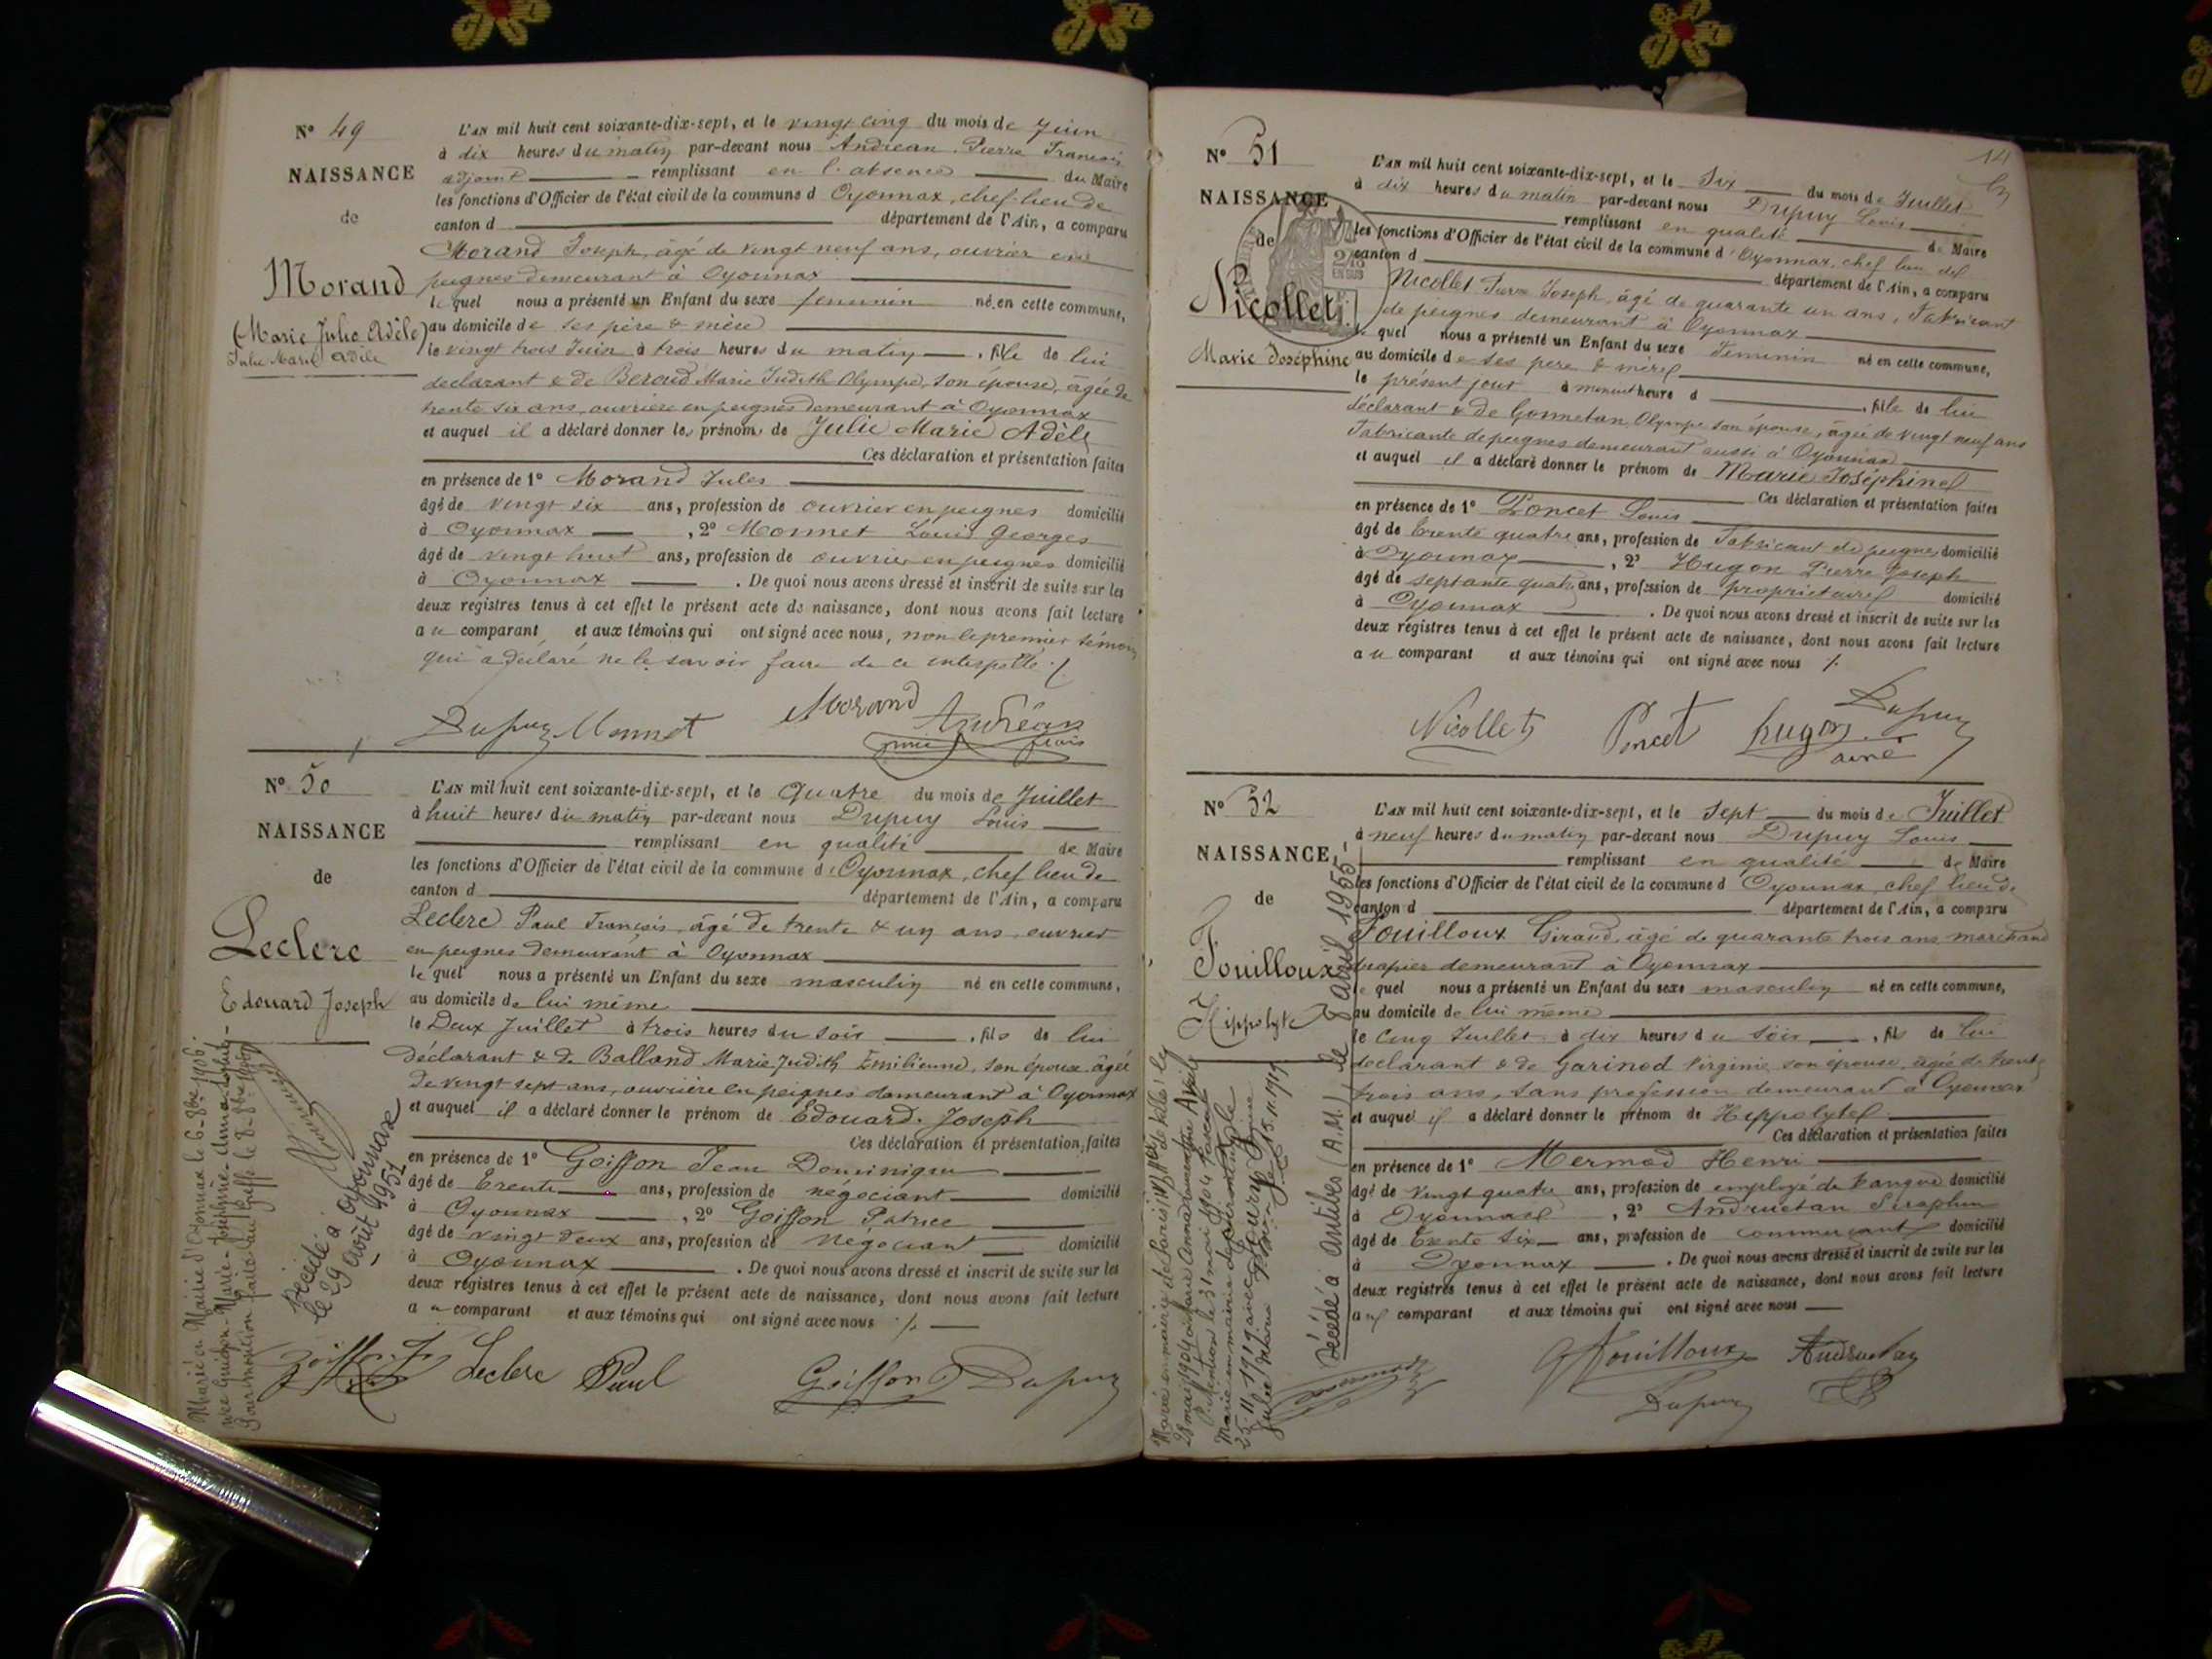 Nº 49
NAISSANCE
de
Morand
(Marie Julie Adèle)
Julie Marie Adèle
L'AN mil huit cent soixante-dix-sept, et le vingt cinq du mois de Juin
à dix heures du matin par-devant nous Andréan Pierre François
adjoint remplissant en l'absence du Maire
les fonctions d'Officier de l'état civil de la commune d Oyonnax, chef-lieu de
canton d département de l'Ain, a comparu
Morand Joseph, âgé de vingt neuf ans, ouvrier en
peignes demeurant à Oyonnax
le quel nous a présenté un Enfant du sexe femenin né en cette commune,
au domicile de ses père & mère
le vingt trois Juin à trois heures du matin, fille de lui
déclarant & de Beroud Marie Judith Olympe, son épouse, âgée de
trente six ans, ouvrière en peignes demeurant à Oyonnax
et auquel il a déclaré donner les prénoms de Julie Marie Adèle
Ces déclaration et présentation faites
en présence de 1º Morand Jules
âgé de vingt six ans, profession de ouvrier en peignes domicilié
à Oyonnax, 2º Monnet Louis Georges
âgé de vingt huit ans, profession de ouvrier en peignes domicilié
à Oyonnax. De quoi nous avons dressé et inscrit de suite sur les
deux registres tenus à cet effet le présent acte de naissance, dont nous avons fait lecture
au comparant et aux témoins qui ont signé avec nous, non le premier témoin
qui a déclaré ne le savoir faire de ce interpellé ./.
Dupuy Monnet Morand Andréan
Nº 50
NAISSANCE
de
Leclerc
Edouard Joseph
L'AN mil huit cent soixante-dix-sept, et le Quatre du mois de Juillet
à huit heures du matin par-devant nous Dupuy Louis
remplissant en qualité de Maire
les fonctions d'Officier de l'état civil de la commune d'Oyonnax, chef lieu de
canton d département de l'Ain, a comparu
Leclerc Paul François, âgé de trente & un ans, ouvrier
en peignes demeurant à Oyonnax
le quel nous a présenté un Enfant du sexe masculin né en cette commune,
au domicile de lui même
le Deux Juillet à trois heures du soir, fils de lui
déclarant & de Balland Marie Judith Emilienne, son épouse âgée
de vingt sept ans, ouvrière en peignes demeurant à Oyonnax
et auquel il a déclaré donner le prénom de Edouard Joseph
Ces déclaration et présentation faites
en présence de 1º Goiffon Jean Dominique
âgé de trente ans, profession de négociant domicilié
à Oyonnax, 2º Goiffon Patrice
âgé de vingt deux ans, profession de négociant domicilié
à Oyonnax. De quoi nous avons dressé et inscrit de suite sur les
deux registres tenus à cet effet le présent acte de naissance, dont nous avons fait lecture
au comparant et aux témoins qui ont signé avec nous ./.
Leclerc Paul Goiffon Dupuy
Marié en Mairie d'Oyonnax le 6-8bre-1906
avec Guigon-Marie-Joséphine-
Décédé à Oyonnax
le 29 Août 1951
14
Nº 51
NAISSANCE
de
Nicollet
Marie Joséphine
L'AN mil huit cent soixante-dix-sept, et le Six du mois de Juillet
à dix heures du matin par-devant nous Dupuy Louis
remplissant en qualité de Maire
les fonctions d'Officier de l'état civil de la commune d'Oyonnax, chef lieu de
canton d département de l'Ain, a comparu
Nicollet Pierre Joseph, âgé de quarante un ans, Fabricant
de peignes demeurant à Oyonnax
le quel nous a présenté un Enfant du sexe Feminin né en cette commune,
au domicile de ses père & mère
le présent jour à minuit heure d, fille de lui
déclarant & de Gonnetan Olympe son épouse, âgée de vingt neuf ans
Fabricante de peignes demeurant aussi à Oyonnax
et auquel il a déclaré donner le prénom de Marie Joséphine
Ces déclaration et présentation faites
en présence de 1º Poncet Louis
âgé de trente quatre ans, profession de Fabricant de peignes domicilié
à Oyonnax, 2º Hugon Pierre Joseph
âgé de septante quatre ans, profession de propriétaire domicilié
à Oyonnax. De quoi nous avons dressé et inscrit de suite sur les
deux registres tenus à cet effet le présent acte de naissance, dont nous avons fait lecture
au comparant et aux témoins qui ont signé avec nous ./.
Nicollet Poncet hugon ainé Dupuy
Nº 52
NAISSANCE
de
Fouilloux
Hippolyte
L'AN mil huit cent soixante-dix-sept, et le Sept du mois de Juillet
à neuf heures du matin par-devant nous Dupuy Louis
remplissant en qualité de Maire
les fonctions d'Officier de l'état civil de la commune d Oyonnax, chef lieu de
canton d département de l'Ain, a comparu
Fouilloux Giraud, âgé de quarante trois ans marchand
drapier demeurant à Oyonnax
le quel nous a présenté un Enfant du sexe masculin né en cette commune,
au domicile de lui même
le Cinq Juillet à dix heures du soir, fils de lui
déclarant & de Garinod Virginie son épouse, âgée de trente
trois ans, sans profession demeurant à Oyonnax
et auquel il a déclaré donner le prénom de Hippolyte
Ces déclaration et présentation faites
en présence de 1º Mermod Henri
âgé de vingt quatre ans, profession de employé de banque domicilié
à Oyonnax, 2º Andruetan Séraphin
âgé de trente six ans, profession de commerçant domicilié
à Oyonnax. De quoi nous avons dressé et inscrit de suite sur les
deux registres tenus à cet effet le présent acte de naissance, dont nous avons fait lecture
au comparant et aux témoins qui ont signé avec nous
Fouilloux Andruetan
Dupuy
Décédé à Antibes (A.M.) le 8 avril 1955